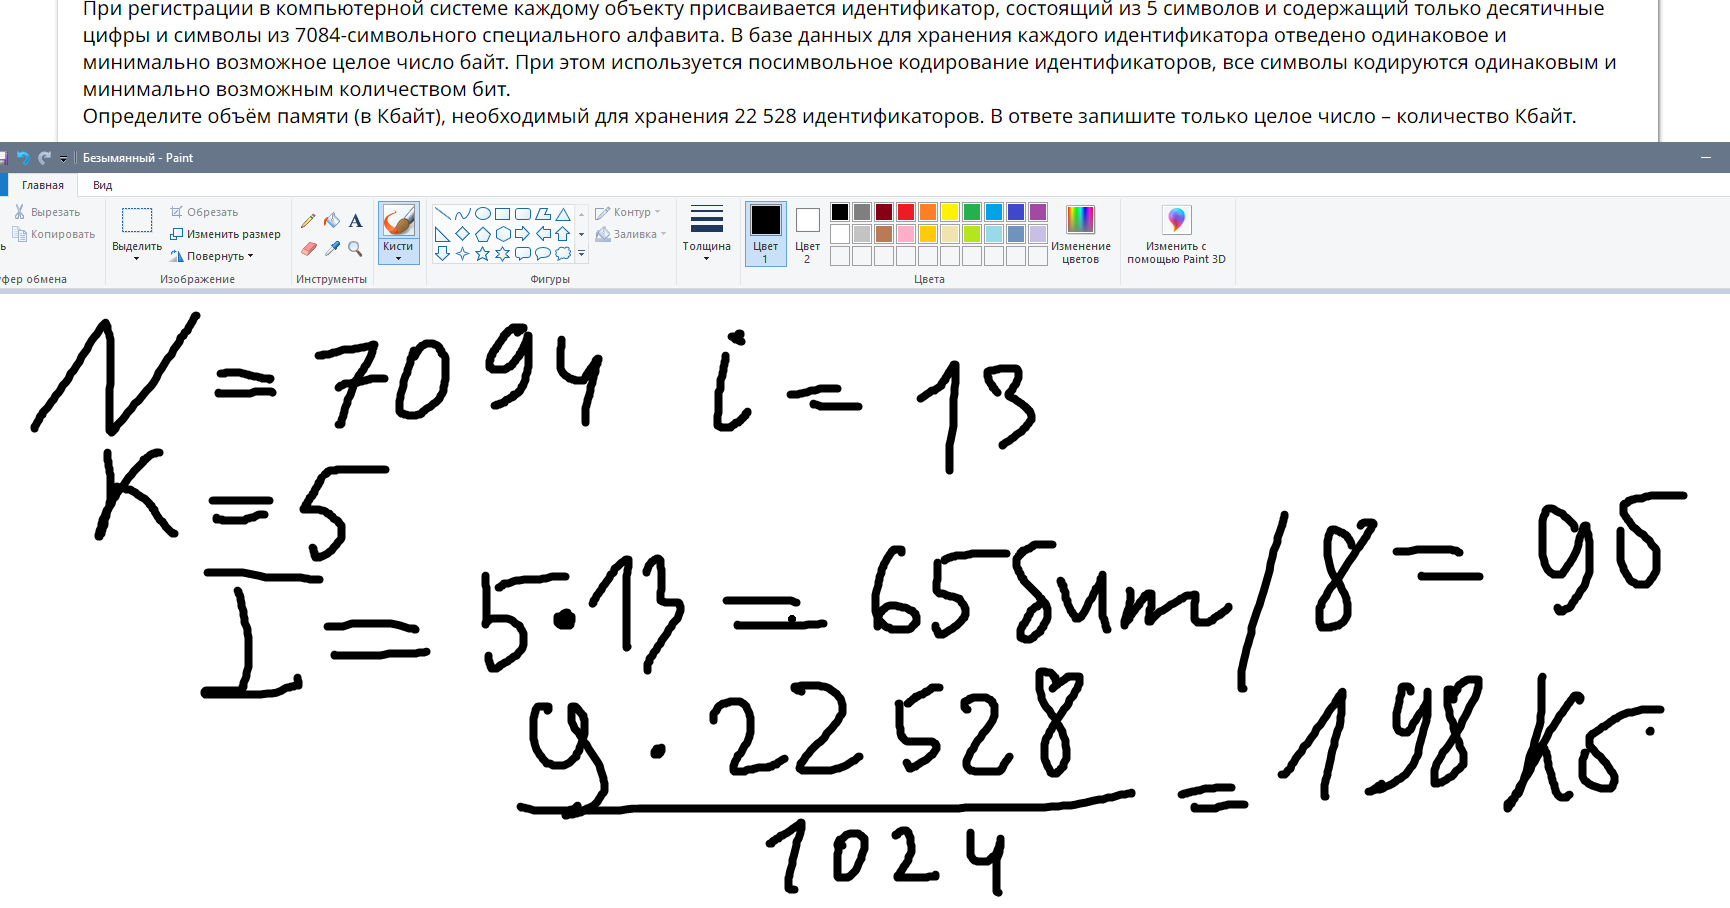 При регистрации в компьютерной системе каждому объекту присваивается идентификатор, состоящий из 5 символов и содержащий только десятичные
цифры и символы из 7084-символьного специального алфавита. В базе данных для хранения каждого идентификатора отведено одинаковое и
минимально возможное целое число байт. При этом используется посимвольное кодирование идентификаторов, все символы кодируются одинаковым и
минимально возможным количеством бит.
Определите объём памяти (в Кбайт), необходимый для хранения 22 528 идентификаторов. В ответе запишите только целое число – количество Кбайт.
Безымянный - Paint
Главная Вид
Вырезать
ь Копировать
фер обмена
Выделить
Обрезать
Изменить размер
Повернуть
Изображение
A
Инструменты
Кисти
Контур
Заливка
Фигуры
Толщина
Цвет 1
Цвет 2
Изменение цветов
Цвета
Изменить с помощью Paint 3D
N = 7094 i = 13
K = 5
I = 5 · 13 = 65 бит / 8 = 9б
9 · 22528
1024
= 198 Кб